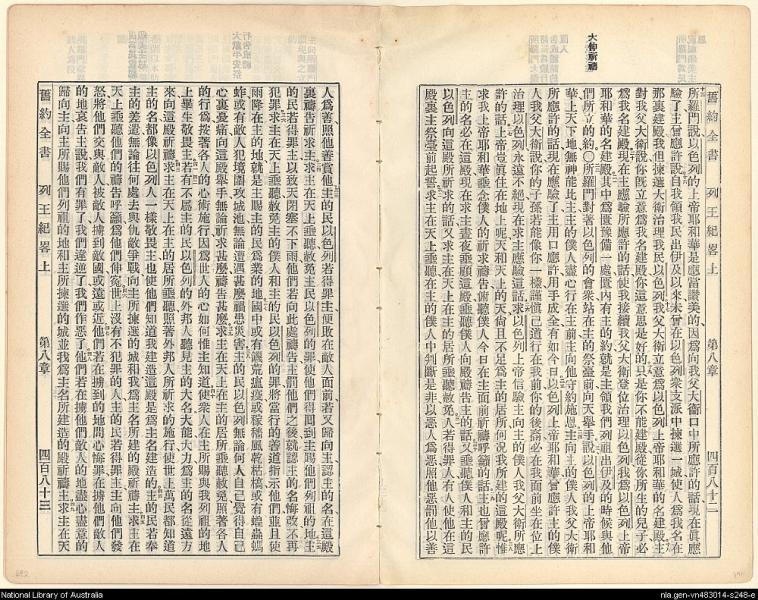 大衛所羅門
舊約全書 列王紀畧上 第八章 四百八十二
所羅門說以色列的上帝耶和華是應當讚美的因爲向我父大衛口中所應許的話現在眞應
驗了主曾應許說自我領我民出伊及以來未嘗在以色列衆支派中揀選一城使人爲我名在
那裏建殿我但揀選大衛治理我民以色列我父大衛立意爲以色列上帝耶和華的名建殿主
對我父大衛說你旣立意爲我名建殿你這意思是好的只是你不能建殿從你所生的兒子必
爲我名建殿現在主應驗所應許的話使我接續我父大衛登位治理以色列我爲以色列上帝
耶和華的名建殿其中爲匱豫備一處匱內有主的約就是主領我們列祖出伊及的時候與他
們所立的約〇所羅門對著以色列的會衆站在主的祭臺前向天舉手說以色列的上帝耶和
華上天下地無神能比主主的僕人盡心行在主前主向他守約施恩主向主的僕人我父大衛
所應許的話現在應驗了主用口應許用手成全有如今日以色列上帝耶和華曾應許主的僕
人我父大衛說你的子孫若能像你一樣謹愼己道行在我前你的後裔必在我面前坐在位上
治理以色列永遠不絕現在求主應驗這話求以色列上帝信驗主向主的僕人我父大衛所應
許的話上帝豈眞住在地上呢天和天上的天倘且不足爲主的居所何況我所建的這殿呢惟
求我上帝耶和華垂念僕人的祈求禱告俯聽僕人今日在主面前祈禱呼籲的話主也曾應許
主的名必在這殿現在求主晝夜垂顧這殿垂聽僕人向殿禱告主的話又垂聽僕人和主的民
以色列向這殿所祈求的話又求主在天上在主的居所垂聽赦免人若得罪人有人使他在這
殿裏主祭臺前起誓求主在天上垂聽在主的僕人中判斷是非以惡人爲惡照他惡罰他以善
人爲善照他善賞他主的民以色列若得罪主便敗在敵人面前若又歸向主認主的名在這殿
裏禱告祈求主求主在天上垂聽赦免主民以色列的罪使他們得回到主賜他們列祖的地主
的民若得罪主以致天閉塞不下雨他們若向此處禱告主罰他們之後就認主的名悔改不再
犯罪求主在天上垂聽赦免主的僕人和主的民以色列的罪將當行的善道指示他們並且使
雨降在主的地就是主賜主的民爲業的地國中或有饑荒瘟疫或稼穡風乾枯槁或有蝗蟲螞
蚱或有敵人犯境圍攻城池無論遭遇甚麼禍患災害主的民以色列無論何人自己覺得自己
心裏憂痛向這殿舉手無論祈求甚麼禱告甚麼求主在天上在主的居所垂聽赦免照著各人
的行爲按著各人的心術施行因爲世人的心如何惟主知道使衆人在主所賜與我列祖的地
上畢生敬畏主若有不屬主的民以色列的外邦人聽見主的大名大能大力爲主的名從遠方
來向這殿祈禱求主在天上在主的居所垂聽照著外邦人所祈求的施行使世上萬民都知道
主的名都像以色列人一樣敬畏主也使他們知道我建造這殿是爲主名建造的主的民若奉
主的差遣無論往何處去與仇敵爭戰向主所揀選的城和我爲主名所建的殿祈禱主求主在
天上垂聽他們的禱告呼籲爲他們伸寃世上沒有不犯罪的人主的民若得罪主主向他們發
怒將他們交與敵人被敵人擄到敵國或遠或近他們若在擄到的地問心悔罪在擄他們敵人
的地哀告主說我們有罪了我們違逆了我們作惡了他們若在擄他們敵人的地盡心盡意的
歸向主向主所賜他們列祖的地和主所揀選的城並我爲主名所建造的殿祈禱主求主在天
舊約全書 列王紀畧上 第八章 四百八十三
National Library of Australia
nla.gen-vn483014-s248-e